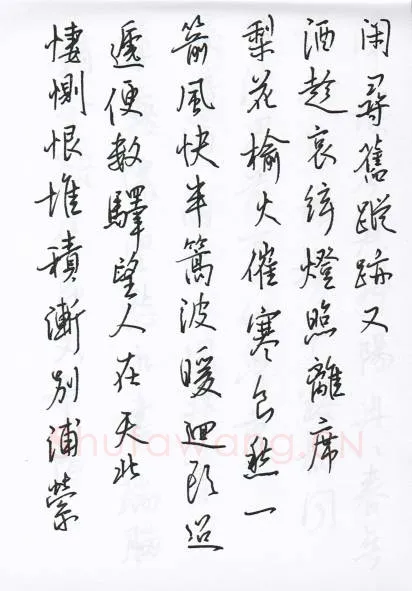 閑尋舊蹤跡又
酒趁哀弦燈照離席
梨花榆火催寒食愁一
箭風快半篙波暖迴頭迢
遞便數驛望人在天北
悽惻恨堆積漸別浦縈
shufawang.CN